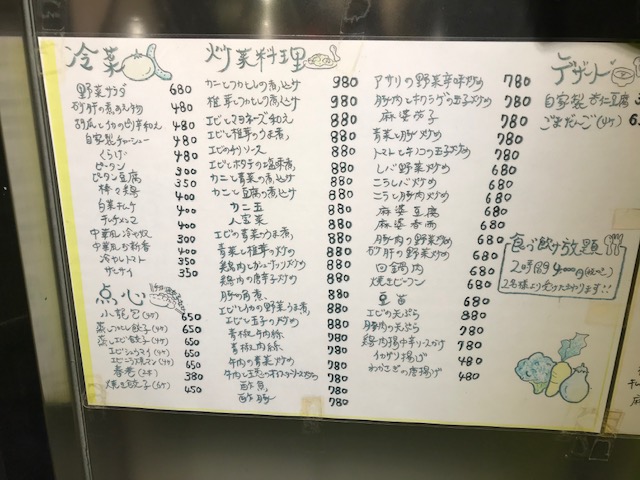 冷菜
野菜サラダ 680
砂肝の煮あえ物 480
砂尻とイカのピリ辛和え 480
自家製チャーシュー 480
くらげ 480
ピータン 300
ピータン豆腐 350
棒々鶏 400
白菜キムチ 400
チャーメンマ 400
中華風冷や奴 300
中華風お新香 400
冷やしトマト 350
ザーサイ 350
点心
小籠包(3ケ) 650
蒸しエビ餃子(4ケ) 650
エビシュウマイ(3ケ) 650
春巻(2本) 380
焼き餃子(5ケ) 450
炒菜料理
カニとフカヒレの煮込み 980
椎茸とフカヒレの煮込み 980
エビとマヨネーズ和え 880
エビと椎茸のうま煮 880
エビのチリソース 880
エビとホタテの塩味煮 880
カニと青菜の煮込み 880
カニと豆腐の煮込み 880
カニ玉 880
八宝菜 880
エビの青菜のうま煮 880
青菜と椎茸の炒め 780
鶏肉とカシューナッツ炒め 780
鶏肉の唐辛子炒め 780
豚の角煮 780
エビとイカの野菜うま煮 780
エビと玉子の炒め 780
青椒牛肉絲 780
青椒肉絲 780
牛肉の青菜炒め 780
牛肉と玉葱のオイスターソース炒め 780
酢鶏 780
酢豚 780
アサリの野菜辛味炒め 780
豚肉とキクラゲの玉子炒め 780
麻婆茄子 780
青菜と豚炒め 780
トマトとキノコの玉子炒め 780
レバ野菜炒め 680
ニラレバ炒め 680
ニラと豚肉炒め 680
麻婆豆腐 680
麻婆春雨 680
豚肉の野菜炒め 680
砂肝の野菜炒め 680
回鍋肉 680
焼きビーフン 680
豆苗 680
エビの天ぷら 880
豚肉の天ぷら 780
鶏肉揚げ辛ソースかけ 780
イカゲソ揚げ 480
わかさぎの唐揚げ 480
デザート
自家製杏仁豆腐
ごまだんご(3ケ)
食べ飲け放題
2時間 4000円(税込)
2名様より受けたまわります!!